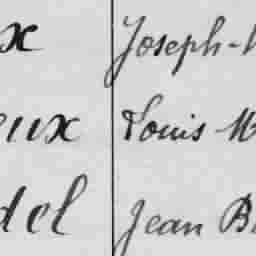 x Joseph-
eux Louis M
del Jean B